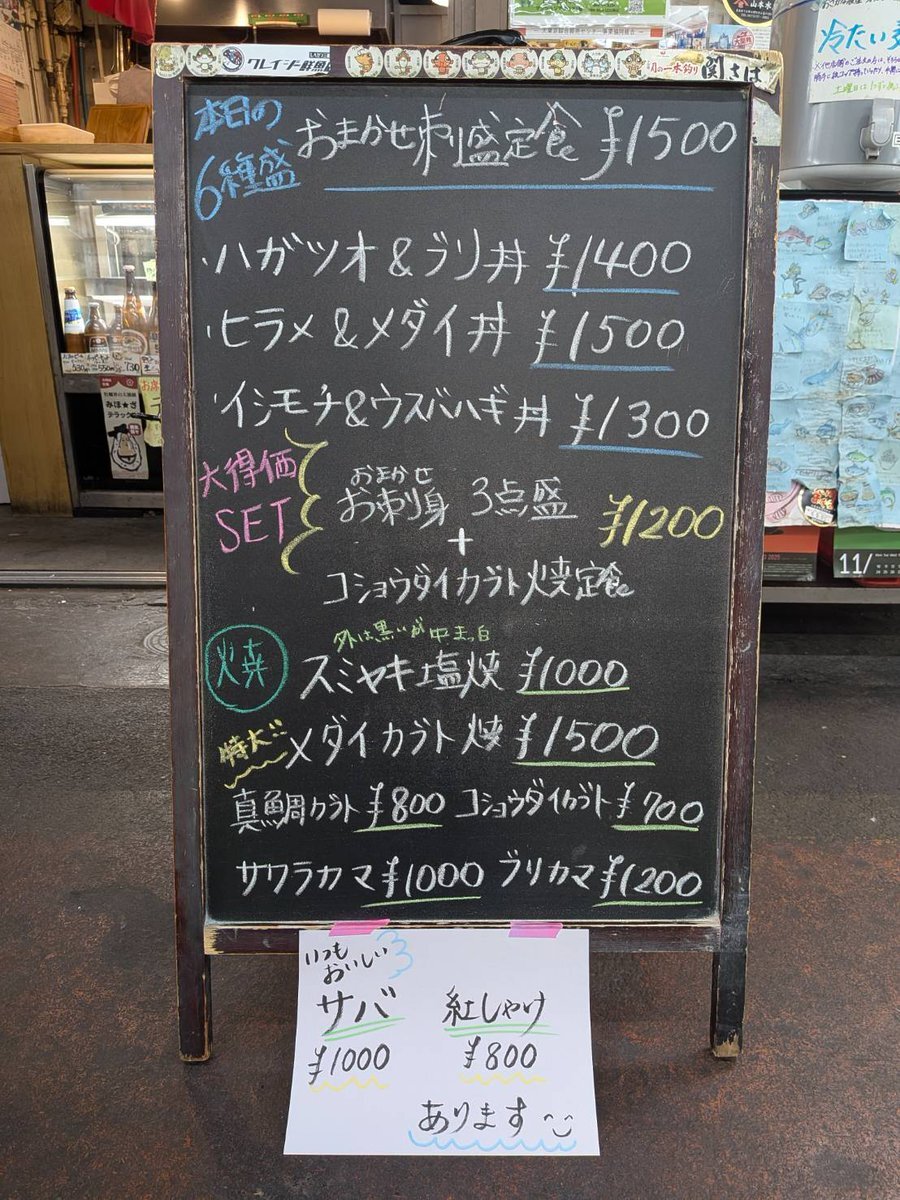 クレイジー鮮魚
初の一本釣り 関さば
山本水
冷たい
土曜日は
本日の
6種盛
おまかせ刺し盛定食 ¥1500
・ハガツオ&ブリ丼 ¥1400
・ヒラメ&メダイ丼 ¥1500
・イシモチ&ウスバハギ丼 ¥1300
大得価
SET
おまかせ
お刺身 3点盛
+
コショウダイカブト焼定食
¥1200
外は黒いが中ま白
焼
スミヤキ塩焼 ¥1000
特大!!
メダイカブト焼 ¥1500
真鯛カブト ¥800 コショウダイカブト ¥700
サワラカマ ¥1000 ブリカマ ¥1200
いつも
おいしい
サバ
¥1000
紅しゃけ
¥800
あります
530円
550円
730
みほ★ざ
テラック
11/